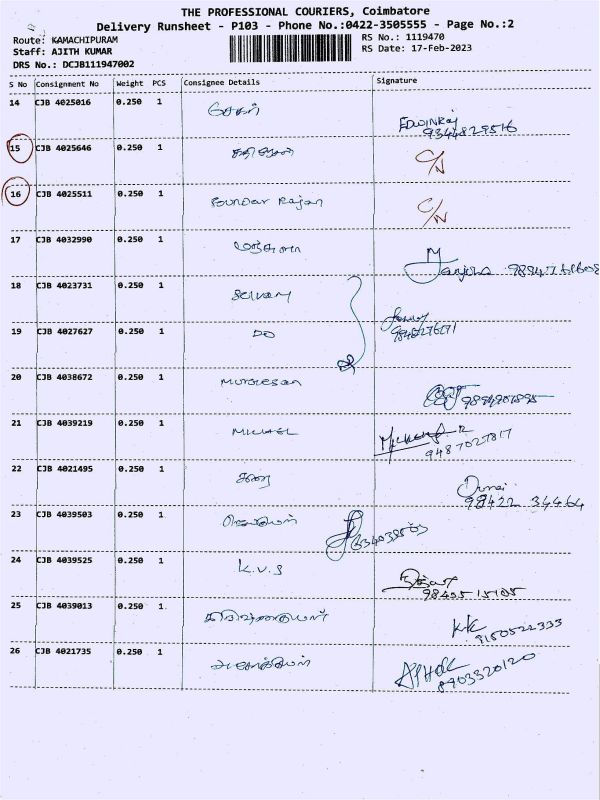 THE PROFESSIONAL COURIERS, Coimbatore
Delivery Runsheet - P103 - Phone No.:0422-3505555 - Page No.:2
Route: KAMACHIPURAM RS No.: 1119470
Staff: AJITH KUMAR RS Date: 17-Feb-2023
DRS No.: DCJB111947002
S No Consignment No Weight PCS Consignee Details Signature
14 CJB 4025016 0.250 1 சேகர் EDWINRAJ
9344829516
15 CJB 4025646 0.250 1 C/N
16 CJB 4025511 0.250 1 Soundar Rajan C/N
17 CJB 4032990 0.250 1 மஞ்சுளா Manjula
18 CJB 4023731 0.250 1 Selvam
19 CJB 4027627 0.250 1 DO
20 CJB 4038672 0.250 1 Murugesan
21 CJB 4039219 0.250 1 MICHAEL
9487027817
22 CJB 4021495 0.250 1 Durai
98422 34464
23 CJB 4039503 0.250 1
24 CJB 4039525 0.250 1 K.V.S
9840515105
25 CJB 4039013 0.250 1 KK
9150522333
26 CJB 4021735 0.250 1 ASHOK
8903320120